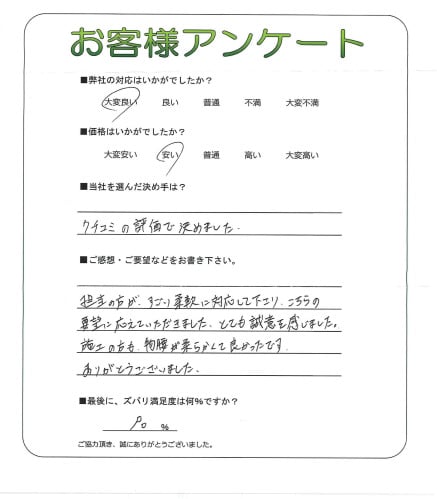 お客様アンケート
■弊社の対応はいかがでしたか？
大変良い 良い 普通 不満 大変不満
■価格はいかがでしたか？
大変安い 安い 普通 高い 大変高い
■当社を選んだ決め手は？
クチコミの評価で決めました.
■ご感想・ご要望などをお書き下さい。
担当の方が、すごく柔軟に対応して下さり、こちらの
要望に応えていただきました。とても誠意を感じました。
施工の方も、物腰が柔らかくて良かったです.
ありがとうございました.
■最後に、ズバリ満足度は何％ですか？
90 %
ご協力頂き、誠にありがとうございました。